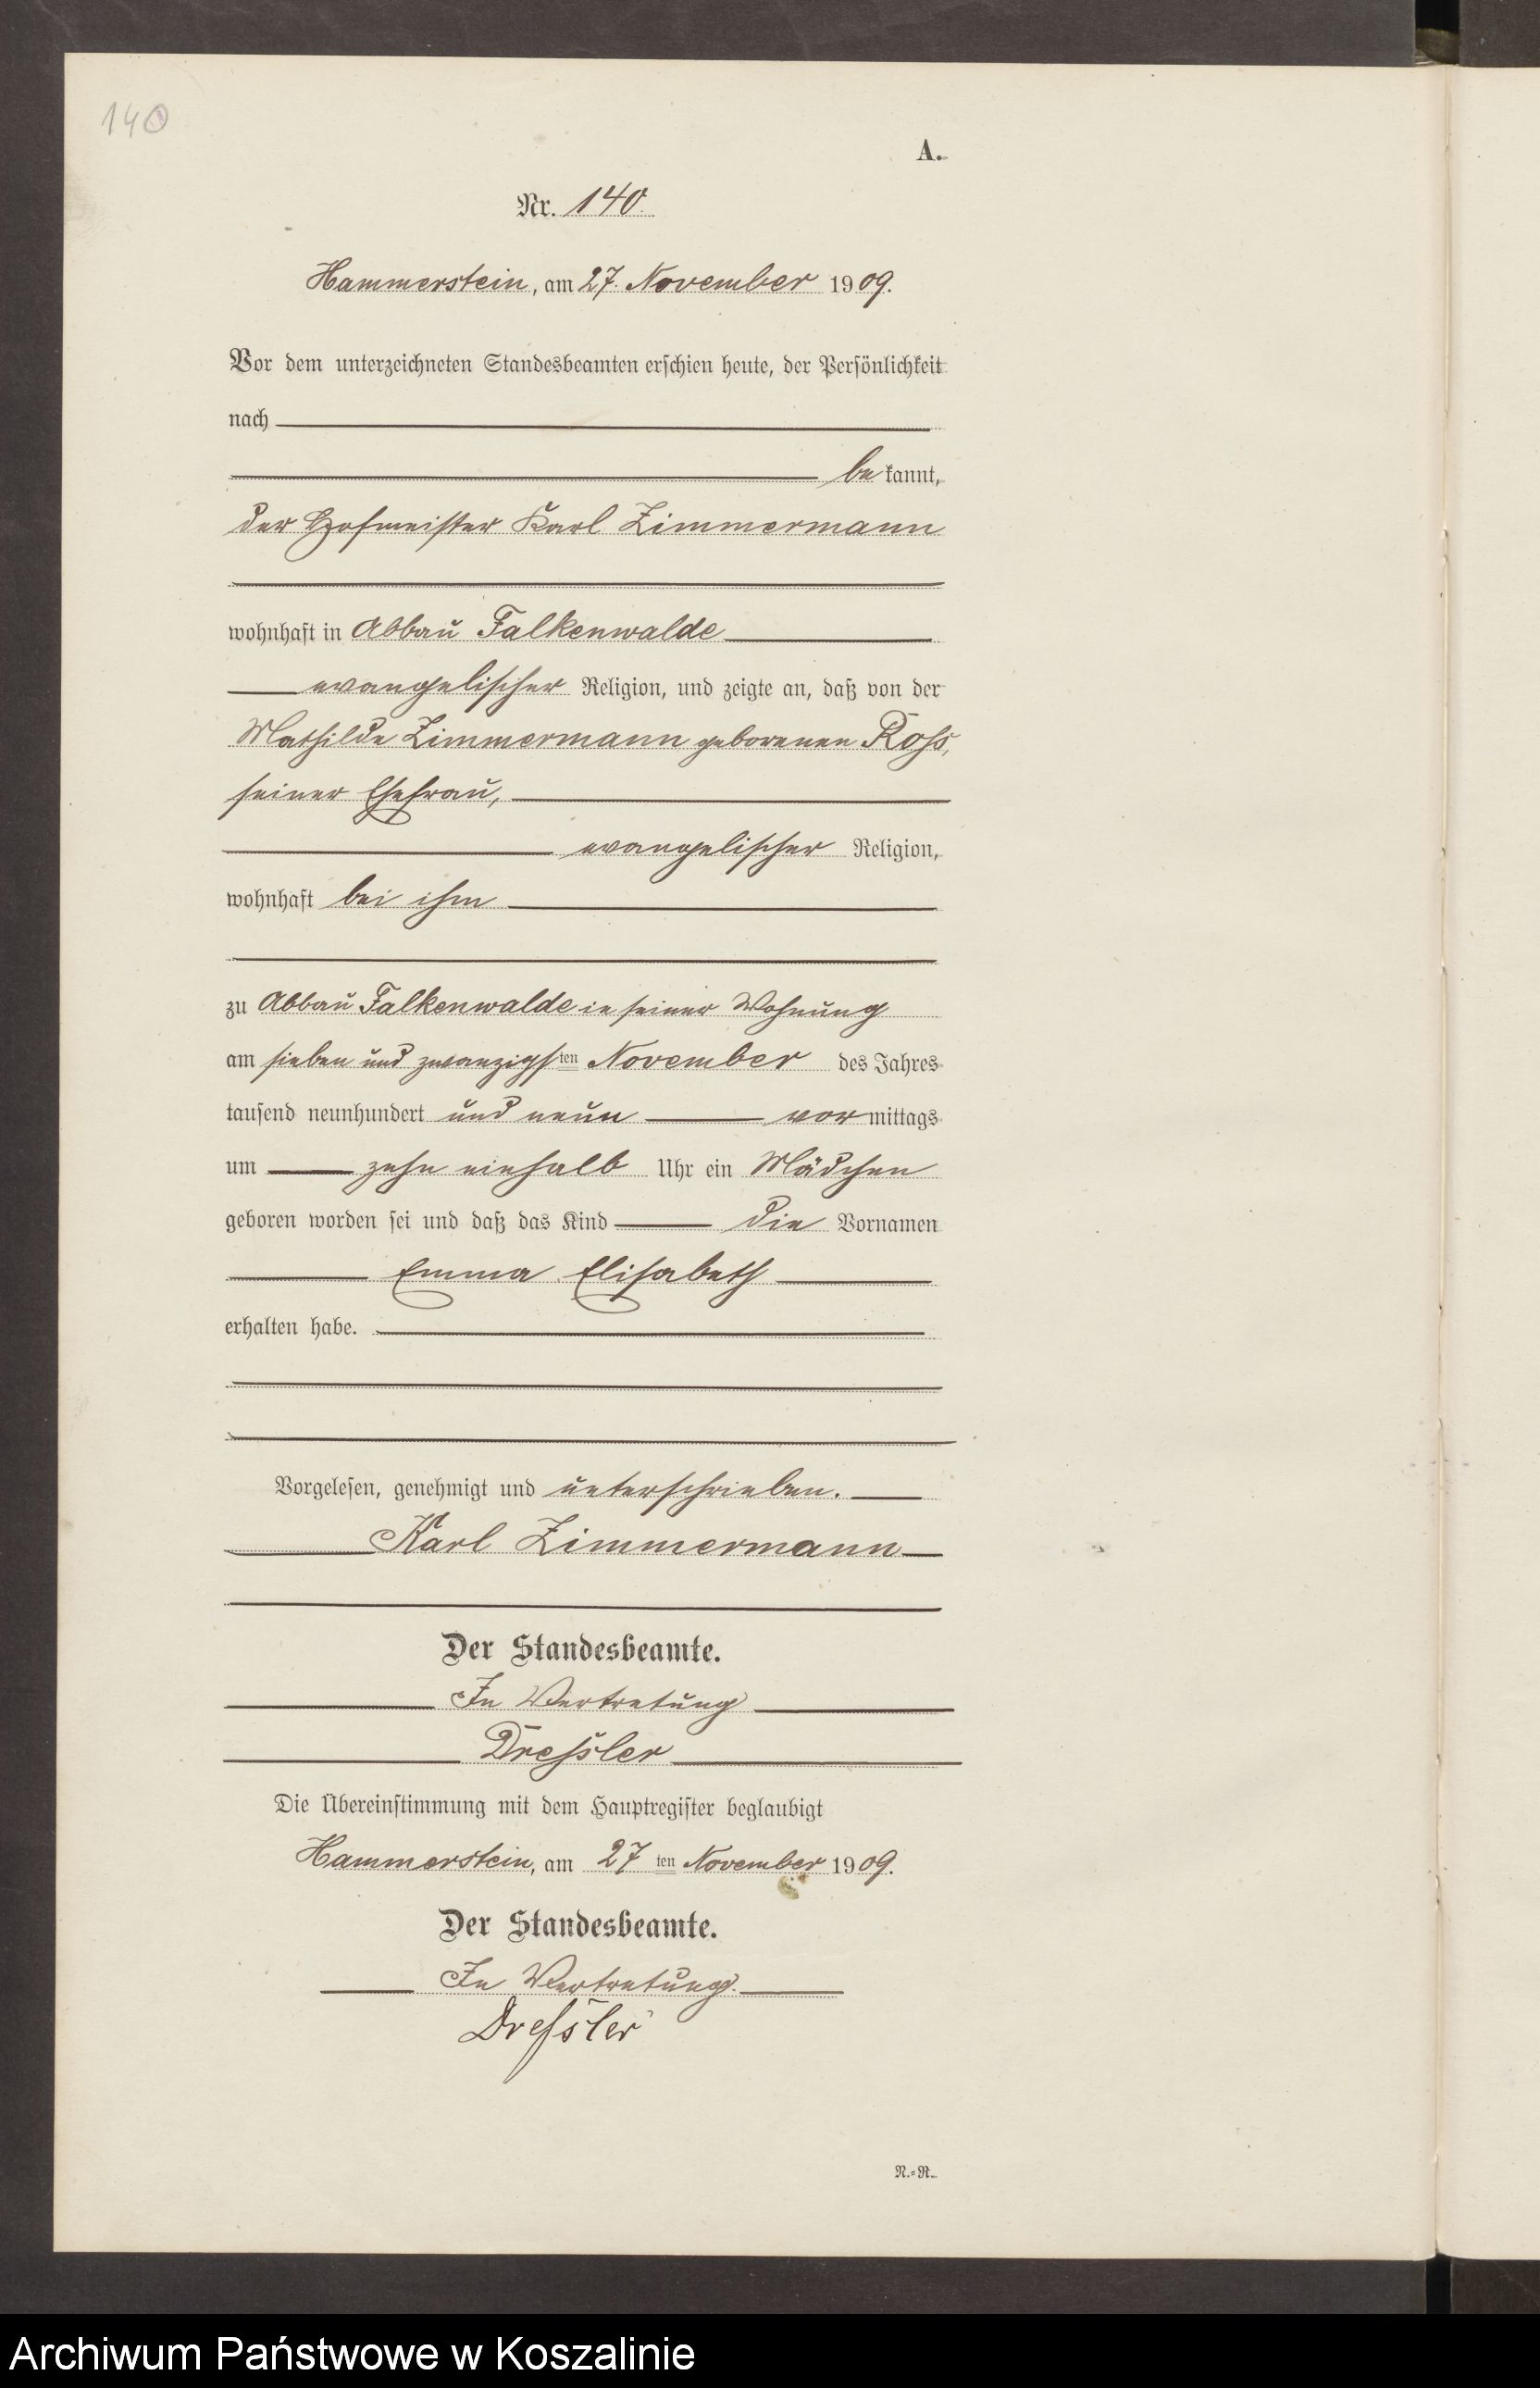 140
A.
Nr. 140.
Hammerstein, am 27. November 1909.
Vor dem unterzeichneten Standesbeamten erschien heute, der Persönlichkeit
nach
bekannt,
der Hofmeister Karl Zimmermann
wohnhaft in Abbau Falkenwalde
evangelischer Religion, und zeigte an, daß von der
Mathilde Zimmermann geborenen Ross,
seiner Ehefrau,
evangelischer Religion,
wohnhaft bei ihm
zu Abbau Falkenwalde in seiner Wohnung
am sieben und zwanzigsten November des Jahres
tausend neunhundert und neun vormittags
um zehn einhalb Uhr ein Mädchen
geboren worden sei und daß das Kind die Vornamen
Emma Elisabeth
erhalten habe.
Vorgelesen, genehmigt und unterschrieben.
Karl Zimmermann
Der Standesbeamte.
In Vertretung
Dressler
Die Übereinstimmung mit dem Hauptregister beglaubigt
Hammerstein, am 27ten November 1909.
Der Standesbeamte.
In Vertretung.
Dressler
N.=R.
Archiwum Państwowe w Koszalinie